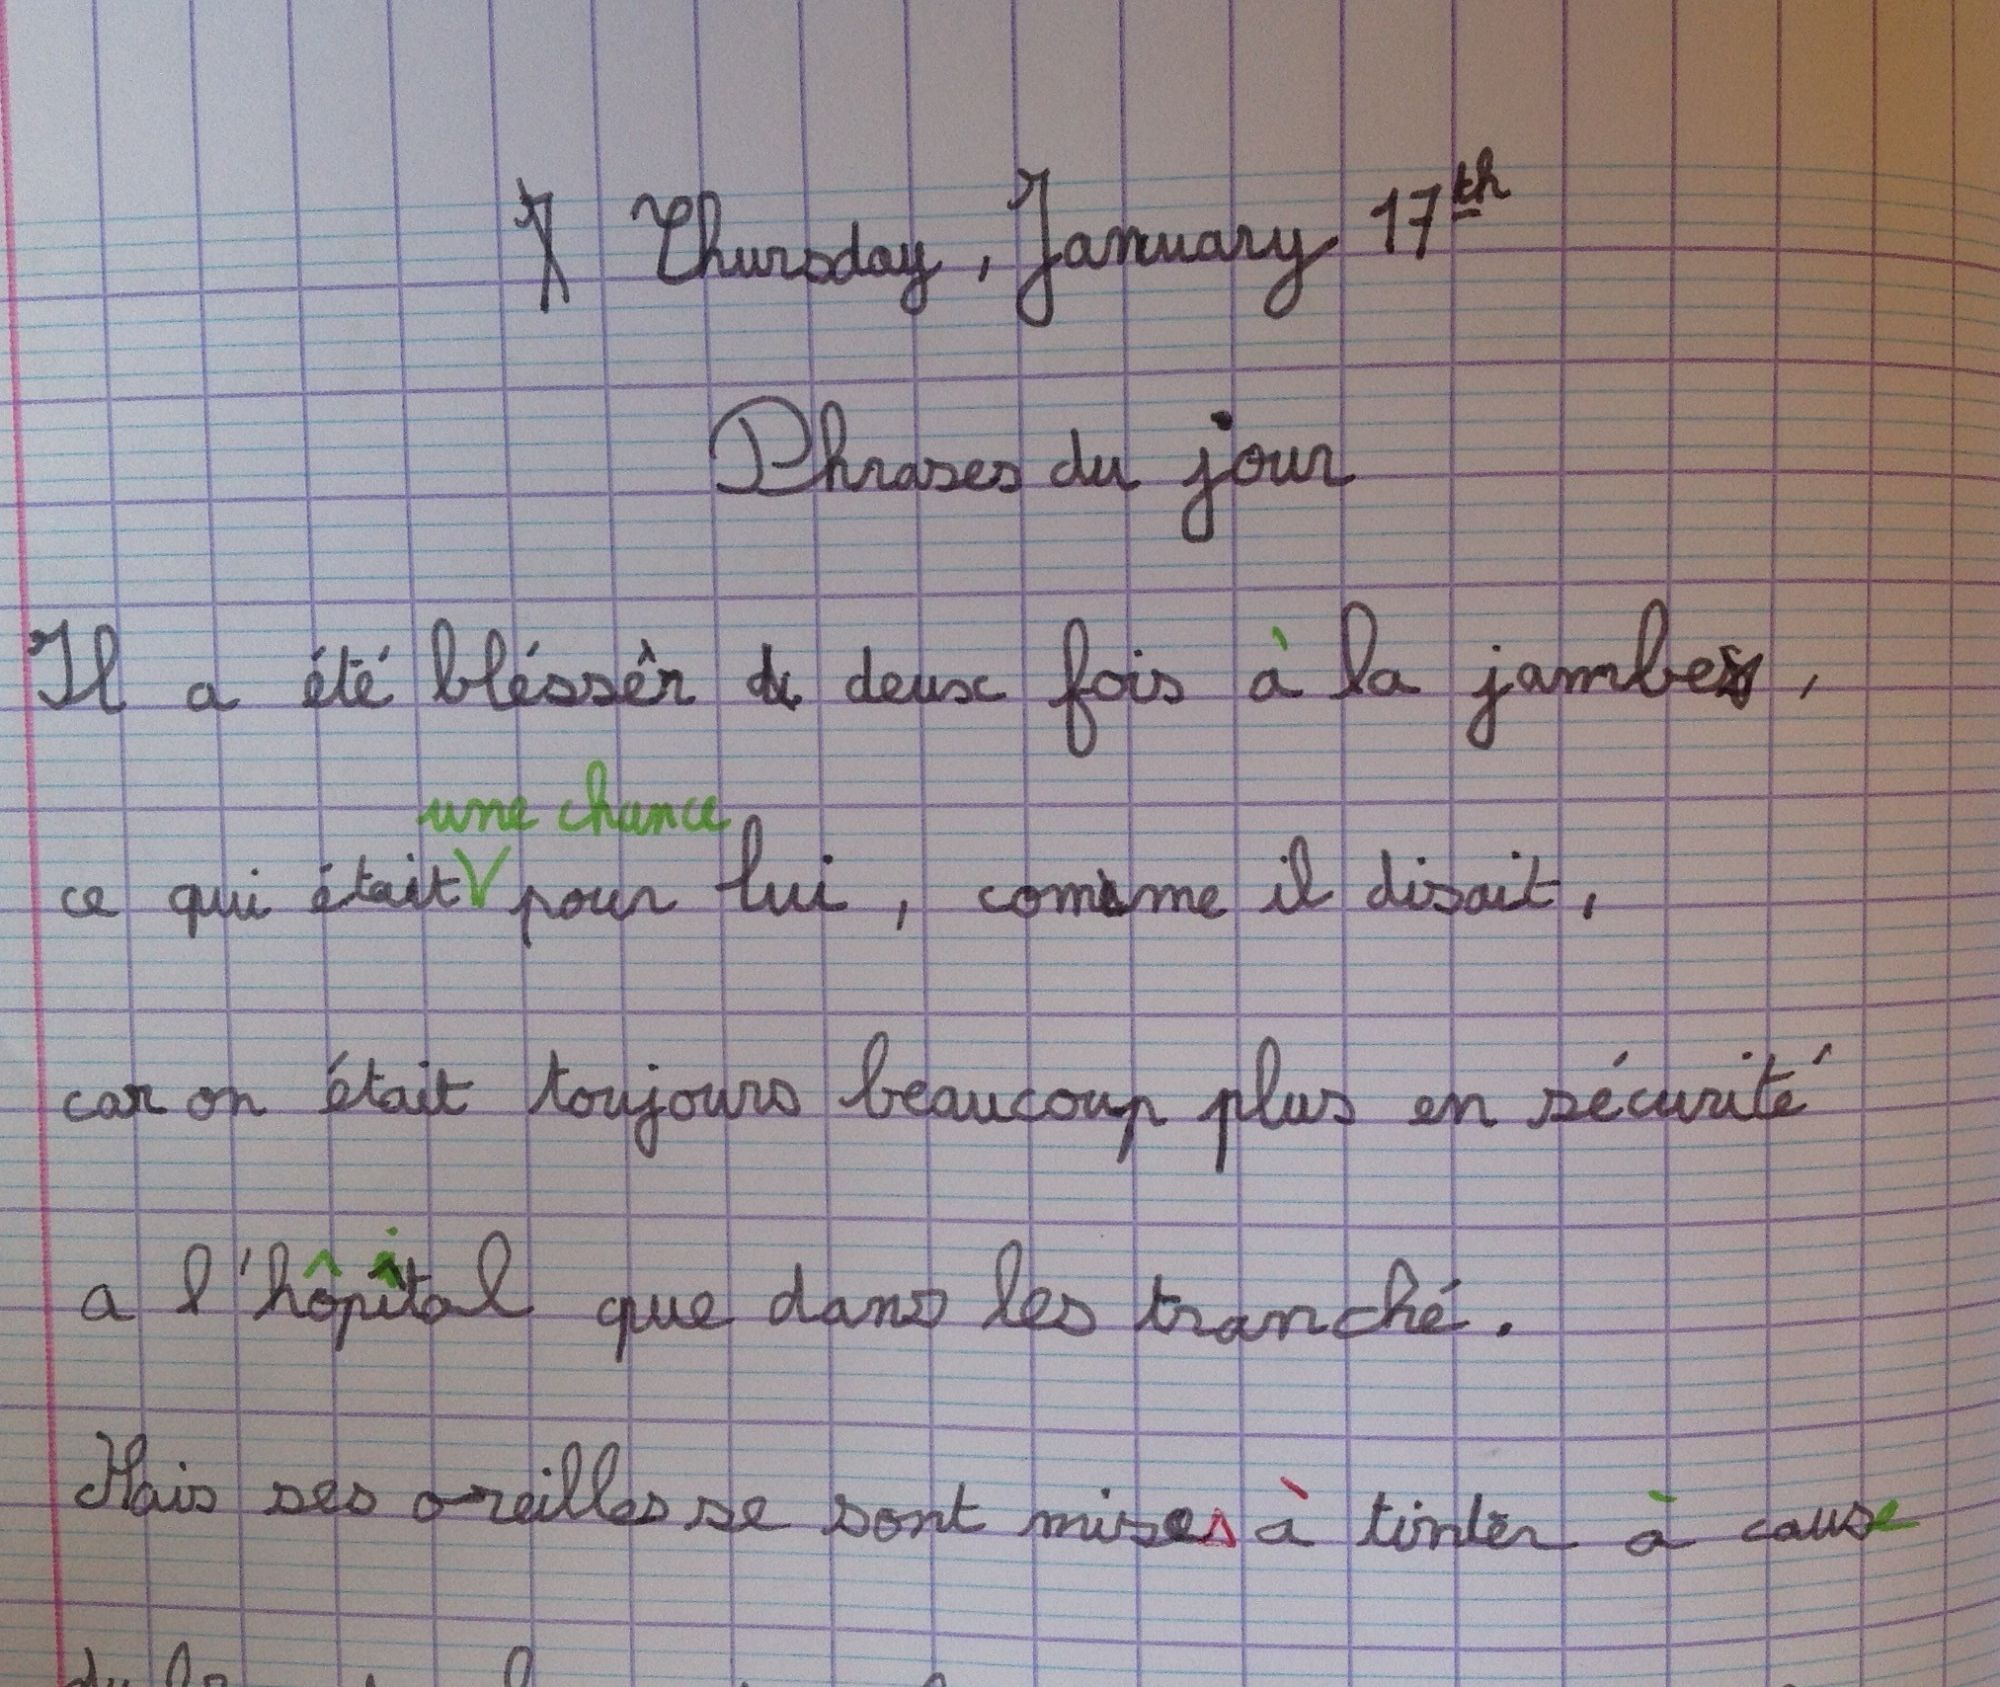 Thursday, January 17th
Phrases du jour
Il a été bléssêr deux fois à la jambe,
une chance
ce qui était V pour lui, comme il disait,
car on était toujours beaucoup plus en sécurité
a l'hôpital que dans les tranché.
Mais ses oreilles se sont mises à tinter à cause
du